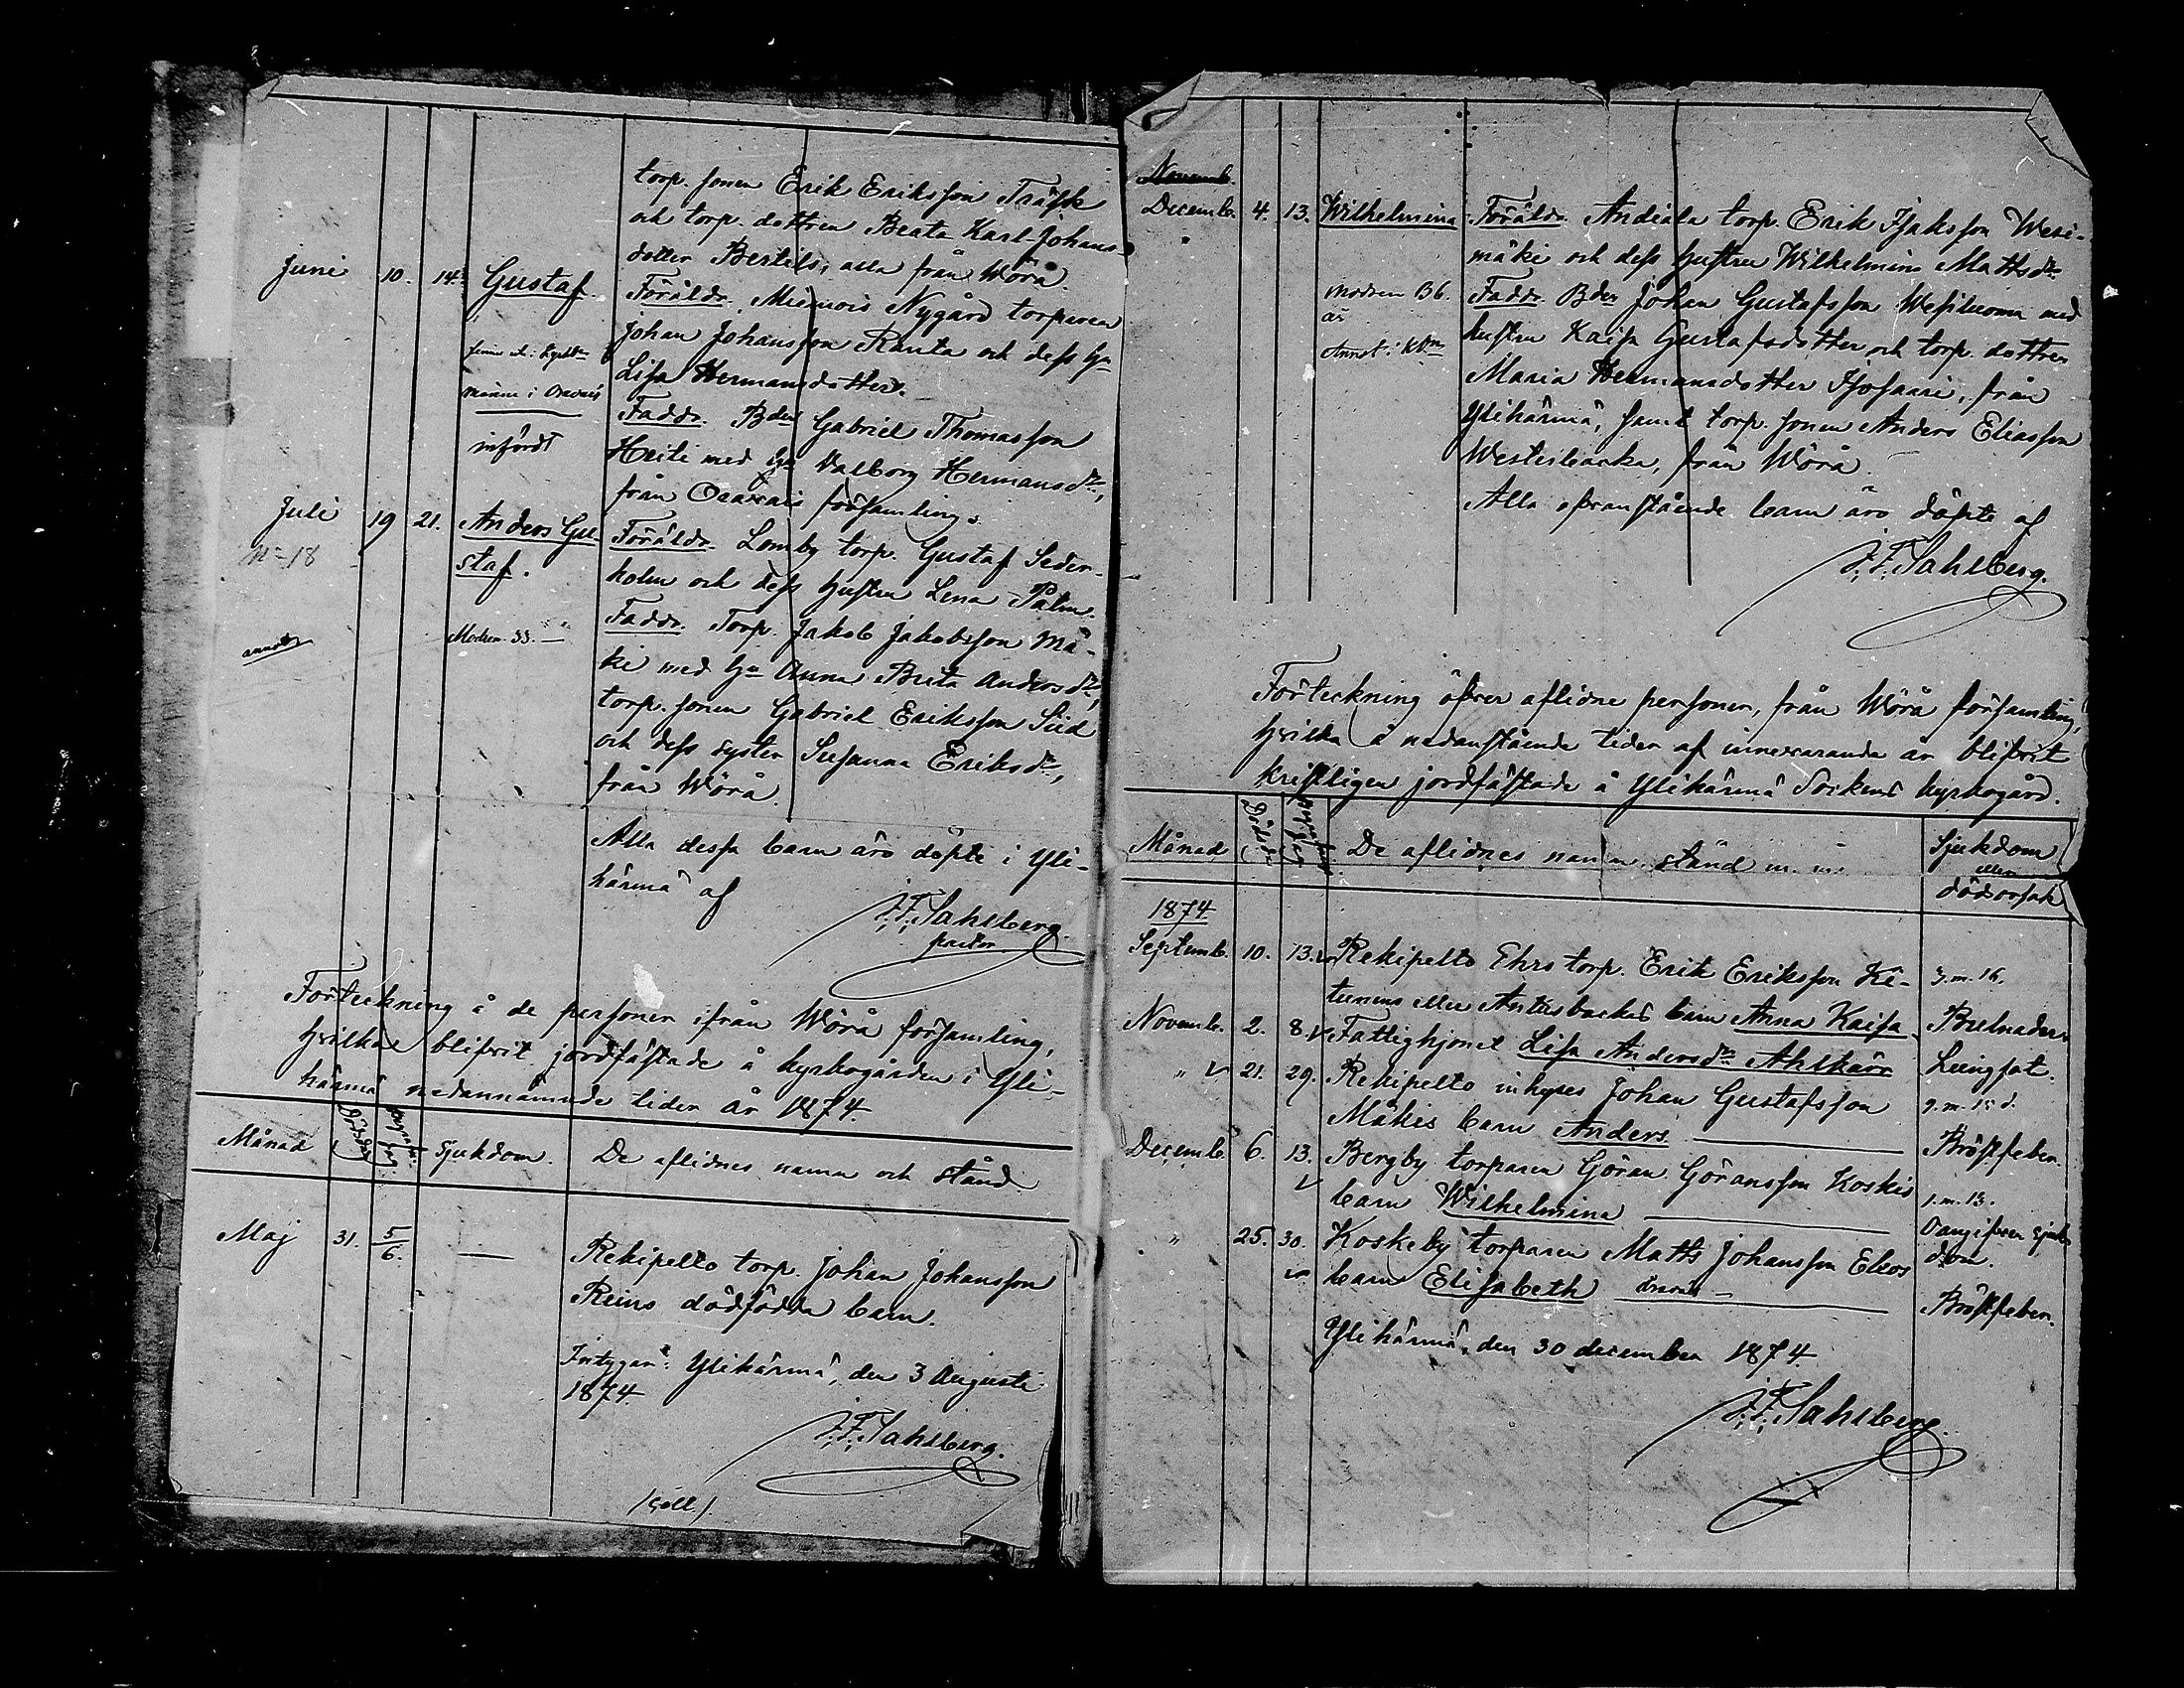 torp. sonen Erik Eriksson Träsk
och torp. dottren Beata Karl-Johans-
dotter Bertils, alla från Wörå.
Juni 10. 14. Gustaf. Föräldr. Nygård torparen
Johan Johansson Ranta och dess hu
Lisa Hermansdotter.
infördt
Faddr. Bden Gabriel Thomasson
Heiti med hu Valborg Hermansdr,
från Oravais församling.
Juli 19 21. Anders Gu- Föräldr. Lomby torp. Gustaf Seder-
No 18 staf. holm och dess hustru Lena Palm.
annot Modren 33. — Faddr. Torp. Jakob Jakobsson Mä-
ki med hu Anna Brita Andersdr,
torp. sonen Gabriel Eriksson Süd
och dess syster Susanna Eriksdr,
från Wörå.
Alla dessa barn äro döpte i Yli-
härmä af
J. F. Sahlberg.
pastor
Förteckning å de personer ifrån Wörå församling,
hvilka blifvit jordfästade å kyrkogården i Yli-
härmä nedannämnde tider år 1874.
Månad Dödsdag Begrafn. dag. Sjukdom. De aflidnes namn och stånd.
Maj 31. 5/6. — Rekipelto torp. Johan Johansson
Reins dödfödda barn.
Intygar: Ylihärmä, den 3 Augusti
1874.
J. F. Sahlberg.
Novemb.
Decemb. 4. 13. Wilhelmina Föräldr. Andiala torp. Erik Isaksson Wesi-
mäki och dess hustru Wilhelmina Mattsdr.
modren 36. Faddr. Bden Johan Gustafsson Wesiluoma med
år hustru Kaisa Gustafsdotter och torp. dottren
Maria Hermansdotter Isosaari, från
Ylihärmä, samt torp. sonen Anders Eliasson
Westerbacka, från Wörå.
Alla ofvanstående barn äro döpte af
J. F. Sahlberg.
Förteckning öfver aflidne personer, från Wörå församling,
hvilka å nedanstående tider af innevarande år blifvit
kristligen jordfästade å Ylihärmä Sockens kyrkogård.
Månad Dödsd. Begrafn. dag De aflidnes namn, stånd m. m. Sjukdom
eller
dödsorsak
1874
Septemb. 10. 13. Rekipelto Ehrs torp. Erik Eriksson Ke- 3. m. 16.
tunens eller Anttisbackas barn Anna Kaisa Bulnader.
Novemb. 2. 8. Fattighjonet Lisa Andersdr Ahlskär Lungsot.
" 21. 29. Rekipelto inhyses Johan Gustafsson 9. m. 15 d.
Mäkis barn Anders. Bröstfeber.
Decemb. 6. 13. Bergby torparen Göran Göransson Koskis 1. m. 13.
barn Wilhelmina Oangifven sjuk-
" 25. 30. Koskeby torparen Matts Johansson Elos dom.
barn Elisabeth Bröstfeber.
Ylihärmä, den 30 december 1874.
J. F. Sahlberg.